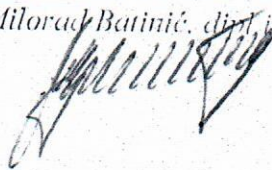 Milorad Batinić, dipl